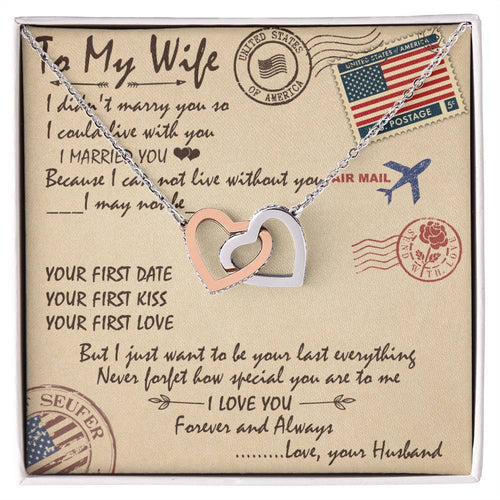 To My Wife
I didn't marry you so
I could live with you
I MARRIED YOU
Because I can not live without you
___I may not be_
YOUR FIRST DATE
YOUR FIRST KISS
YOUR FIRST LOVE
But I just want to be your last everything
Never forfet how special you are to me
I LOVE YOU
Forever and Always
.........Love, your Husband
UNITED STATES
OF AMERICA
UNITED STATES of AMERICA
U.S. POSTAGE 5¢
AIR MAIL
SEND WITH LOVE
SEUFER